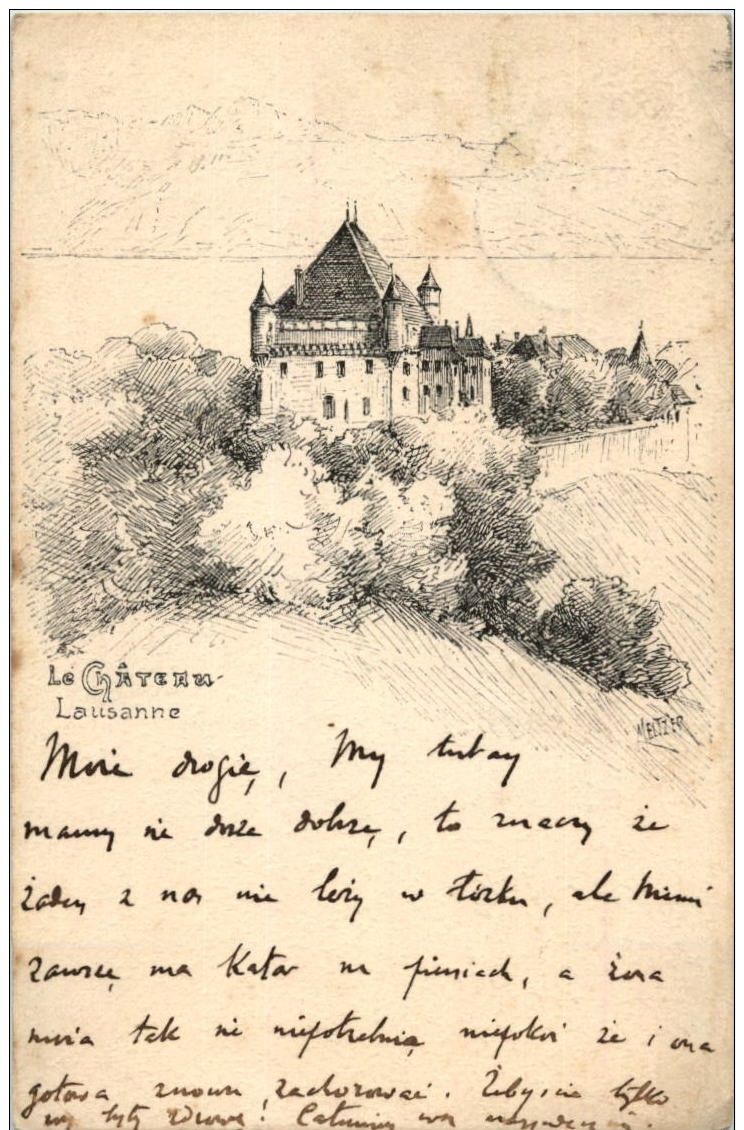 Le Château
Lausanne
MELTZER
Moie drogie, My tutay
mamy się dosze dobrze, to znaczy że
żaden z nas nie leży w łóżku, ale Mimi
zawsze ma Katar na piersiach, a żona
moia tak się niepotrzebnie niepokoi że i ona
gotowa znowu zachorować. Żebyście tylko
wy były zdrowe! Całuiemy was